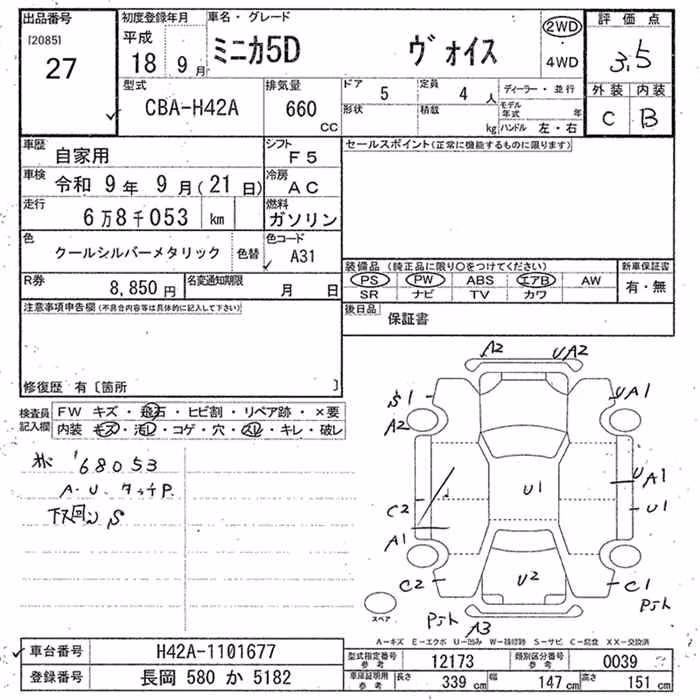 出品番号
[2085]
27
初度登録年月
平成
18 9月
車名・グレード
ミニカ5D ヴォイス
2WD
・
4WD
評価点
3.5
外装 内装
C B
型式
CBA-H42A
排気量
660
cc
ドア 5
形状
定員 4 人
積載 kg
ディーラー・並行
モデル年式 年
ハンドル 左・右
車歴
自家用
シフト
F5
車検
令和 9年 9月(21日)
冷房
AC
走行
6万8千053 km
燃料
ガソリン
色
クールシルバーメタリック
色替
色コード
A31
R券
8,850円
名変通知期限
月 日
セールスポイント(正常に機能するものに限ります)
装備品 (純正品に限り○をつけてください)
PS PW ABS エアB AW
SR ナビ TV カワ
新車保証書
有・無
後日品
保証書
注意事項申告欄(不具合内容等は具体的に記入して下さい)
修復歴 有〔箇所 〕
検査員
記入欄
FW キズ・飛石・ヒビ割・リペア跡・×要
内装 キズ・汚レ・コゲ・穴・スレ・キレ・破レ
'68053
A・U・タッチP.
下回りS
A2 UA2
S1 UA1
A2
UA1
U1
C2 U1
A1
C2 U2 C1
A3
スペア
A-キズ E-エクボ U-凹み W-補修跡 S-サビ C-腐食 XX-交換済
車台番号
H42A-1101677
登録番号
長岡 580 か 5182
型式指定番号
参考
12173
類別区分番号
参考
0039
車庫証明用
参考
長さ 339cm
幅 147cm
高さ 151cm